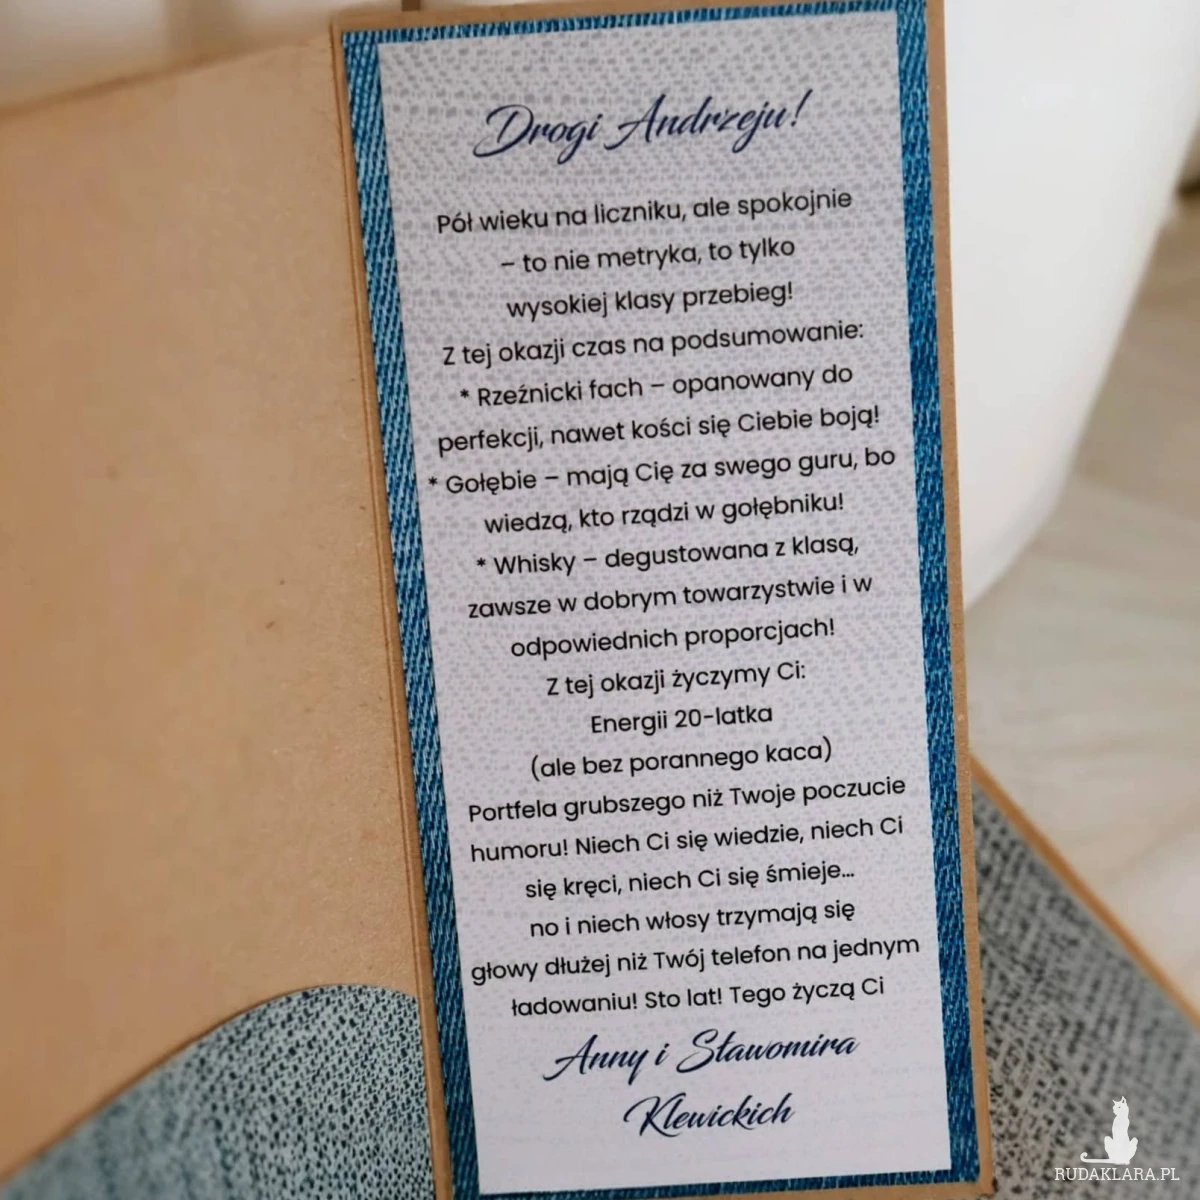 Drogi Andrzeju!
Pół wieku na liczniku, ale spokojnie
– to nie metryka, to tylko
wysokiej klasy przebieg!
Z tej okazji czas na podsumowanie:
* Rzeźnicki fach – opanowany do
perfekcji, nawet kości się Ciebie boją!
* Gołębie – mają Cię za swego guru, bo
wiedzą, kto rządzi w gołębniku!
* Whisky – degustowana z klasą,
zawsze w dobrym towarzystwie i w
odpowiednich proporcjach!
Z tej okazji życzymy Ci:
Energii 20-latka
(ale bez porannego kaca)
Portfela grubszego niż Twoje poczucie
humoru! Niech Ci się wiedzie, niech Ci
się kręci, niech Ci się śmieje...
no i niech włosy trzymają się
głowy dłużej niż Twój telefon na jednym
ładowaniu! Sto lat! Tego życzą Ci
Anny i Sławomira
Klewickich
RUDAKLARA.PL